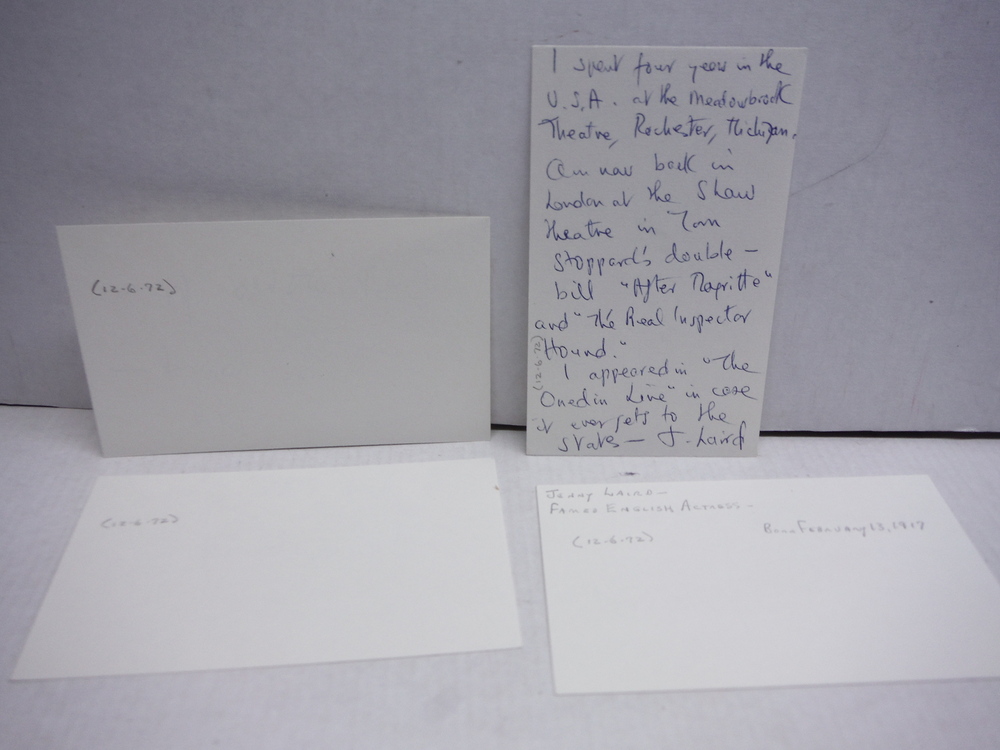 (12-6-72)
I spent four years in the
U.S.A. at the Meadowbrook
Theatre, Rochester, Michigan.
Am now back in
London at the Shaw
Theatre in Tom
Stoppard's double-
bill "After Magritte"
and "The Real Inspector
Hound."
I appeared in "The
Onedin Line" in case
it ever gets to the
States — J. Laird
(12-6-72)
(12-6-72)
JENNY LAIRD—
FAMED ENGLISH ACTRESS—
BORN FEBRUARY 13, 1917
(12-6-72)